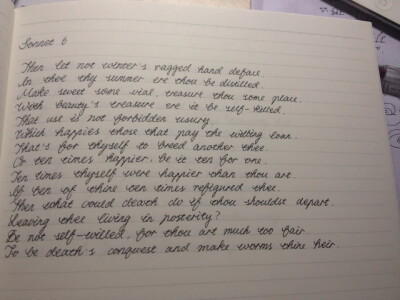 Sonnet 6
Then let not winter's ragged hand deface,
In thee thy summer ere thou be distilled.
Make sweet some vial, treasure thou some place.
With beauty's treasure ere it be self-killed.
That use is not forbidden usury.
Which happies those that pay the willing loan.
That's for thyself to breed another thee.
Or ten times happier, be it ten for one.
Ten times thyself were happier than thou art.
If ten of thine ten times refigured thee.
Then what could death do if thou shouldst depart.
Leaving thee living in posterity?
Be not self-willed, for thou art much too fair.
To be death's conquest and make worms thine heir.